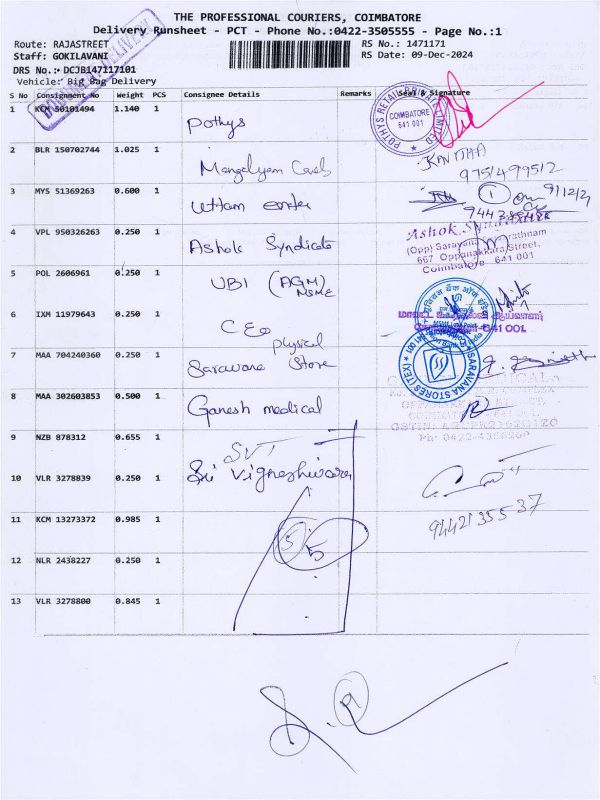 THE PROFESSIONAL COURIERS, COIMBATORE
Delivery Runsheet - PCT - Phone No.:0422-3505555 - Page No.:1
Route: RAJASTREET
RS No.: 1471171
Staff: GOKILAVANI
RS Date: 09-Dec-2024
DRS No.: DCJB147117101
Vehicle: Big Bag Delivery
S No Consignment No Weight PCS Consignee Details Remarks Seal & Signature
1 KCM 50101494 1.140 1 Pothys
POTHYS RETAIL PRIVATE LIMITED
COIMBATORE
641 001
2 BLR 150702744 1.025 1 Mangalyam Cards
KAVITHA
9751499512
3 MYS 51369263 0.600 1 Uttam
9/12/24
4 VPL 950326263 0.250 1 Ashok Syndicate
Ashok Syndicate
(Opp) Sarayana
667 Oppanakkara Street,
Coimbatore 641 001
5 POL 2606961 0.250 1 UBI (AGM)
MSME
6 IXM 11979643 0.250 1 CEO
physical
641 001.
7 MAA 704240360 0.250 1 Saravana Store
SARAVANA STORES (TEX)
8 MAA 302603853 0.500 1 Ganesh medical
9 NZB 878312 0.655 1 SVT
10 VLR 3278839 0.250 1 Sri Vigneshwara
9442135537
11 KCM 13273372 0.985 1
5 5
12 NLR 2438227 0.250 1
13 VLR 3278800 0.845 1